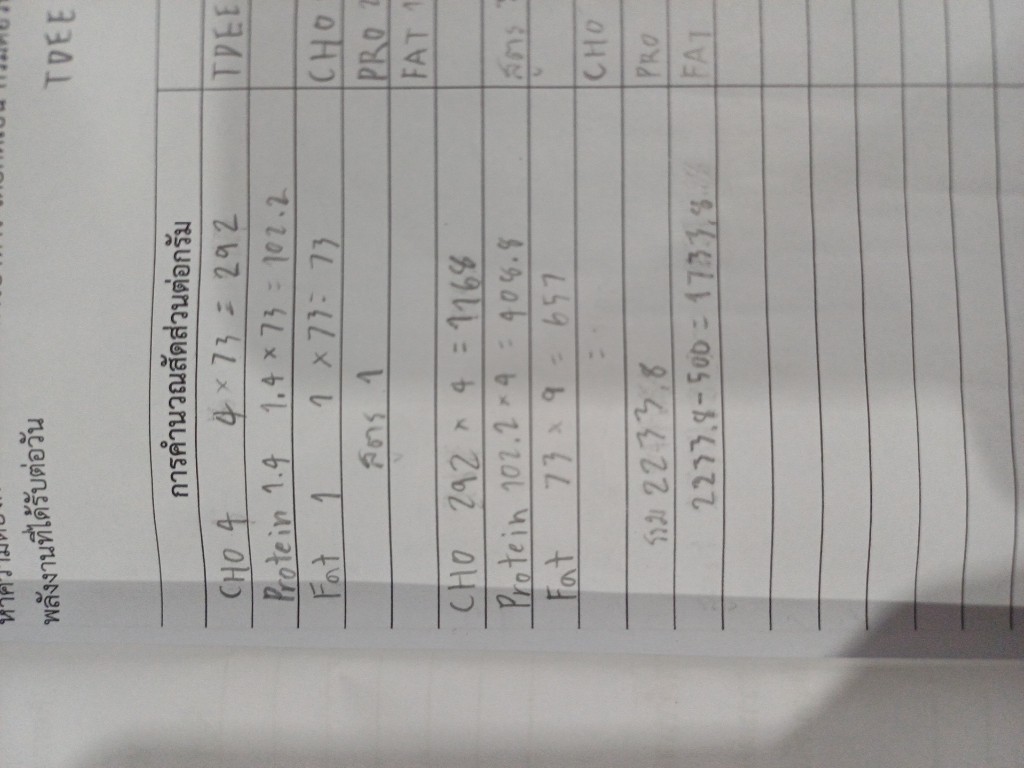 TDEE
พลังงานที่ได้รับต่อวัน
การคำนวณสัดส่วนต่อกรัม
CHO 4 4 × 73 = 292
Protein 1.4 1.4 × 73 = 102.2
Fat 1 1 × 73 = 73
สูตร 1
CHO 292 × 4 = 1168
Protein 102.2 × 4 = 408.8
Fat 73 × 9 = 657
=
รวม 2233.8
2233.8-500 = 1733.8
TDEE
CHO
PRO
FAT 1
สูตร
CHO
PRO
FAT